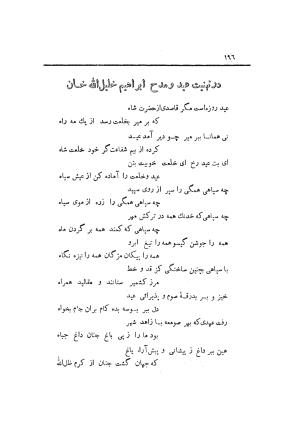 ۱۹۶
در تهنیت عید و مدح ابراهیم خلیل الله خان
عید روزه است مگر قاصدی از حضرت شاه
که بر میر بخلعت رسد از یك مه راه
نی همانا بر میر چو دیر آمد عید
کرده از بیم شفاعتگر خود خلعت شاه
ای بت عید رخ ای خلعت خوبیت بتن
عید و خلعت را آماده کن از عیش سپاه
چه سپاهی همگی را سپر از روی سپید
چه سپاهی همگی را زره از موی سیاه
چه سپاهی که خدنك همه در ترکش مهر
چه سپاهی که کمند همه بر گردن ماه
همه را جوشن گیسو همه را تیغ ابرو
همه را پیکان مژگان همه را نیزه نگاه
با سپاهی چنین ساختگی کز قد و خط
مرز کشمیر ستانند و مقالید همراه
خیز و بدرقه صوم و پذیرائی عید
دل ببر بوسه بده کام بران جام بخواه
رفت عهدی که بهر صومعه با زاهد شهر
بود ما را ز پی باغ جنان داغ جباه
هین ببر داغ ز پیشانی و پیش آر باغ
که جهان گشت جنان از کرم ظل الله